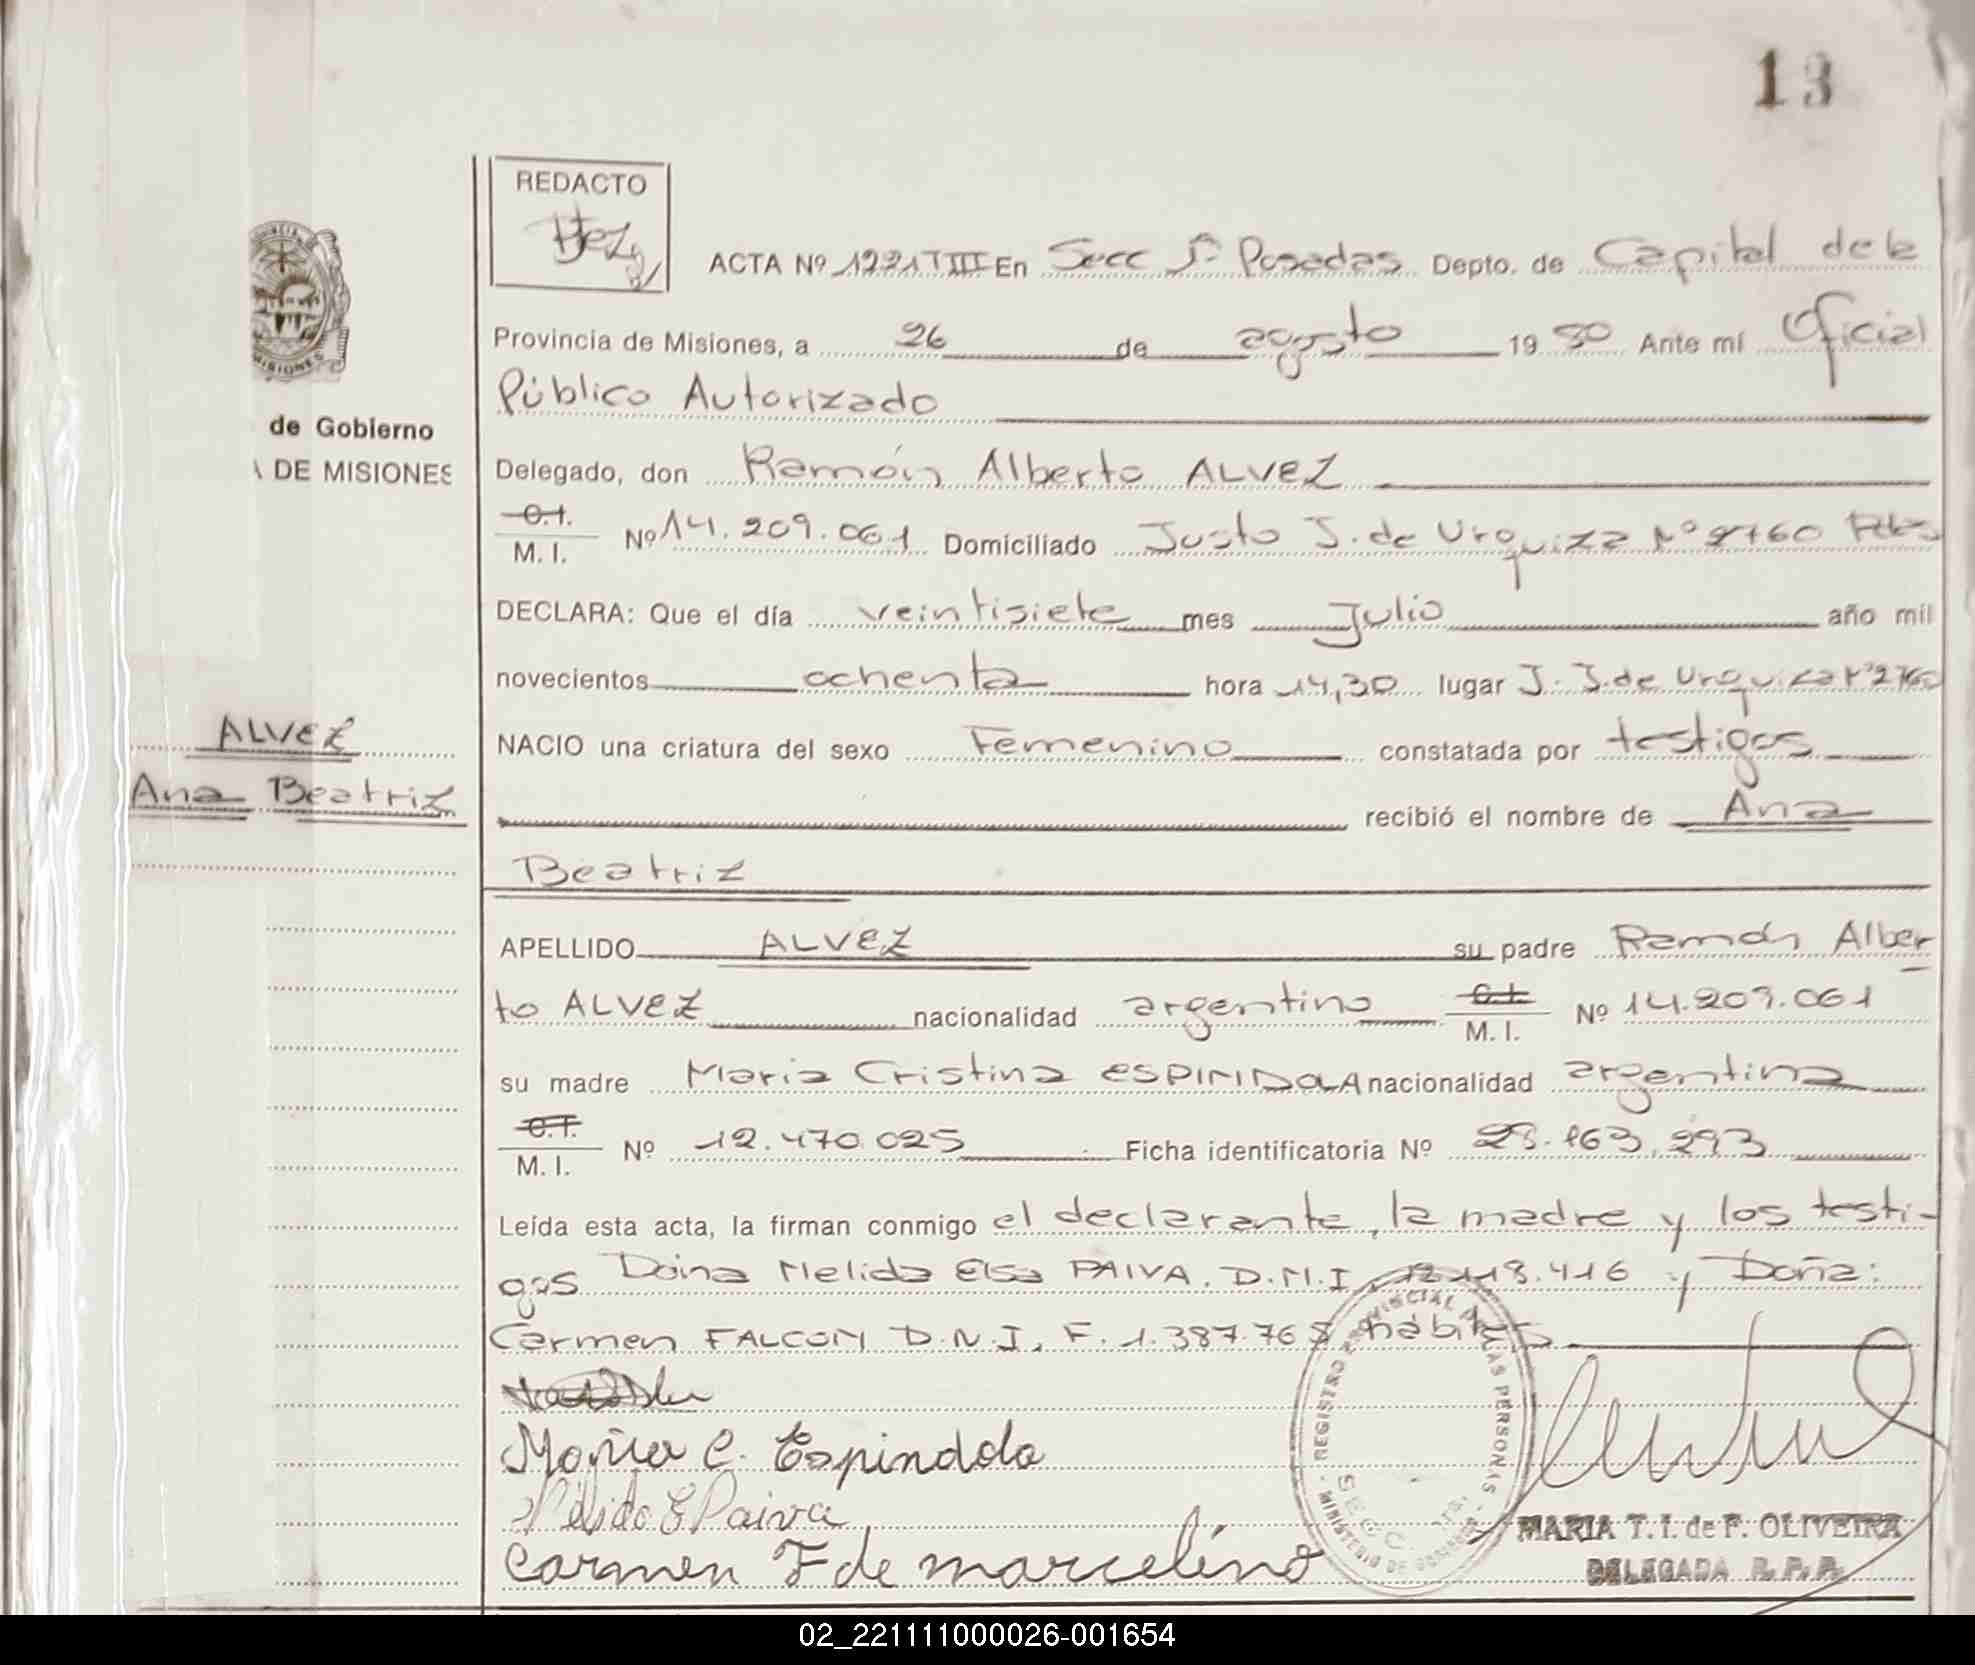 13
REDACTO
ACTA Nº 1221 T III En Secc 1ª Posadas Depto. de Capital de la
Provincia de Misiones, a 26 de agosto 19 80 Ante mí Oficial
Público Autorizado
de Gobierno
A DE MISIONES
Delegado, don Ramón Alberto ALVEZ
C.I.
M. I. Nº 14.209.061 Domiciliado Justo J. de Urquiza Nº 2760
DECLARA: Que el día veintisiete mes Julio año mil
novecientos ochenta hora 14,30 lugar J. J. de Urquiza Nº 2760
ALVEZ
NACIO una criatura del sexo Femenino constatada por testigos
Ana Beatriz
recibió el nombre de Ana
Beatriz
APELLIDO ALVEZ su padre Ramón Alber
to ALVEZ nacionalidad argentino C.I. M. I. Nº 14.209.061
su madre Maria Cristina ESPINDOLA nacionalidad argentina
C.I.
M. I. Nº 12.470.025 Ficha identificatoria Nº 28.163.293
Leída esta acta, la firman conmigo el declarante, la madre y los testi-
gos Doña Nelida Elsa PAIVA. D.N.I. 418.416 y Doña:
Carmen FALCON D.N.I. F. 1.387.768 hábiles
Maria C. Espindola
Nélida E Paiva
Carmen F de marcelino
REGISTRO PROVINCIAL DE LAS PERSONAS
MINISTERIO DE GOBIERNO
SECC.
MARIA T. I. de F. OLIVEIRA
DELEGADA R. P. P.
02_221111000026-001654